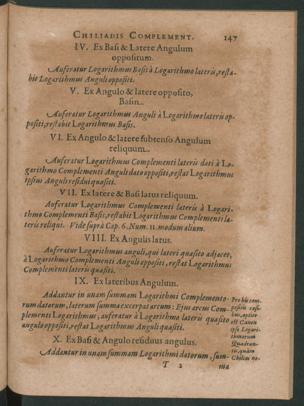 CHILIADIS COMPLEMENT. 147
IV. Ex Basi & Latere Angulum
oppositum.
Auferatur Logarithmus Basis à Logarithmo lateris, resta-
bit Logarithmus Anguli oppositi.
V. Ex Angulo & latere opposito,
Basin.
Auferatur Logarithmus Anguli à Logarithmo lateris op-
positi, restabit Logarithmus Basis.
VI. Ex Angulo & latere subtenso Angulum
reliquum.
Auferatur Logarithmus Complementi lateris dati à Lo-
garithmo Complementi Anguli dato oppositi, restat Logarithmus
ipsius Anguli residui quæsiti.
VII. Ex latere & Basi latus reliquum.
Auferatur Logarithmus Complementi lateris à Logari-
thmo Complementi Basis, restabit Logarithmus Complementi la-
teris reliqui. Vide suprà Cap. 6. Num. 11. modum alium.
VIII. Ex Angulis latus.
Auferatur Logarithmus anguli, qui lateri quæsito adjacet,
à Logarithmo Complementi Anguli oppositi, restat Logarithmus
Complementi lateris quæsiti.
IX. Ex lateribus Angulum.
Addantur in unam summam Logarithmi Complemento-
rum datorum, laterum summa excerpat arcum: Ejus arcus Com-
plementi Logarithmus, auferatur à Logarithmo lateris quæsito
angulo oppositi, restat Logarithmus Anguli quæsiti.
X. Ex Basi & Angulo residuus angulus.
Addantur in unam summam Logarithmi datorum, sum-
T 2 ma
Pro his com-